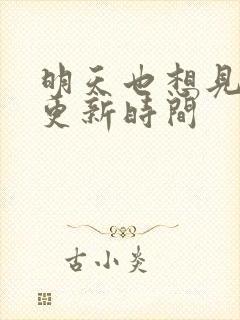 明天也想見
更新時間
古小炎